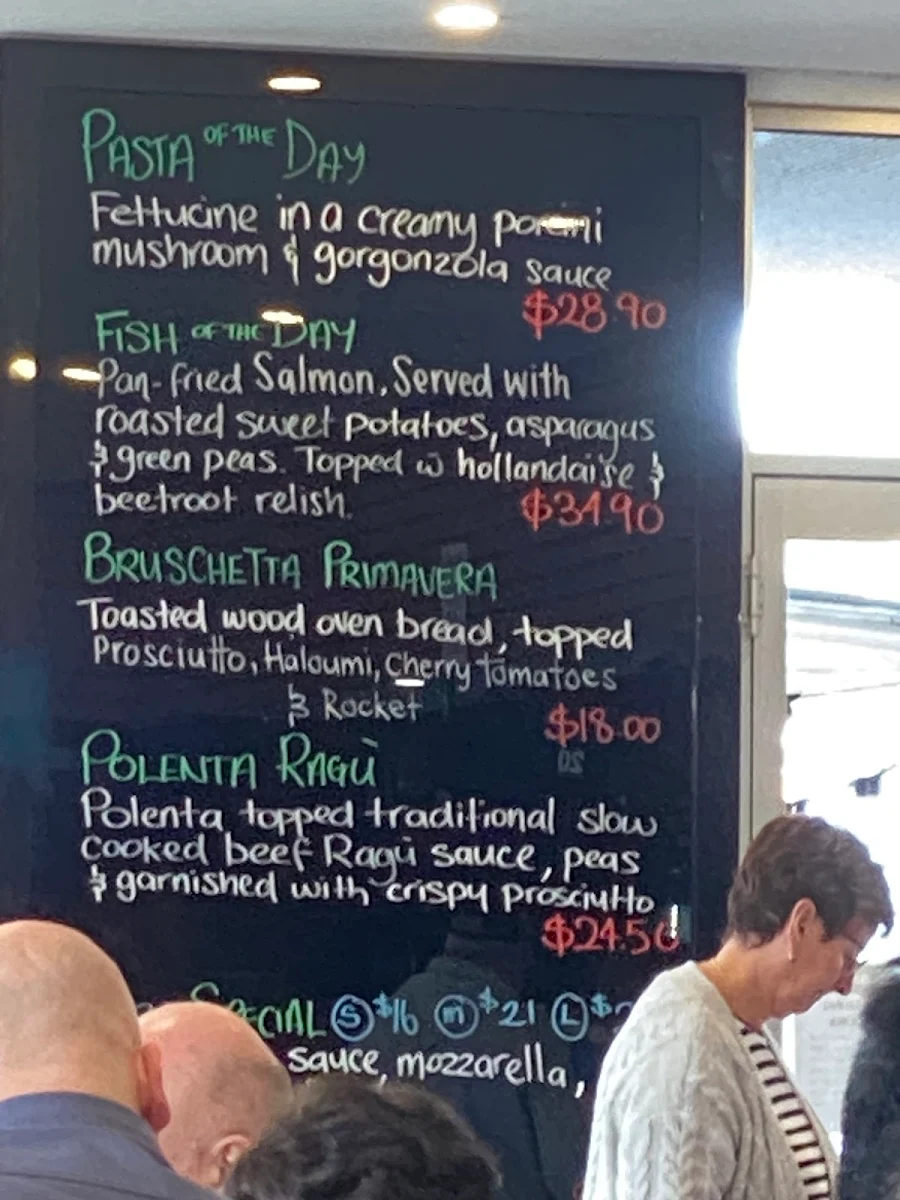 PASTA OF THE DAY
Fettucine in a creamy porcini
mushroom & gorgonzola sauce
$28.90
FISH OF THE DAY
Pan-fried Salmon. Served with
roasted sweet potatoes, asparagus
& green peas. Topped w hollandaise &
beetroot relish.
$34.90
BRUSCHETTA PRIMAVERA
Toasted wood oven bread, topped
Prosciutto, Haloumi, Cherry Tomatoes
& Rocket
$18.00
POLENTA RAGÙ
Polenta topped traditional slow
cooked beef Ragù sauce, peas
& garnished with crispy prosciutto
$24.50
SPECIAL S $16 M $21 L $
sauce, mozzarella,